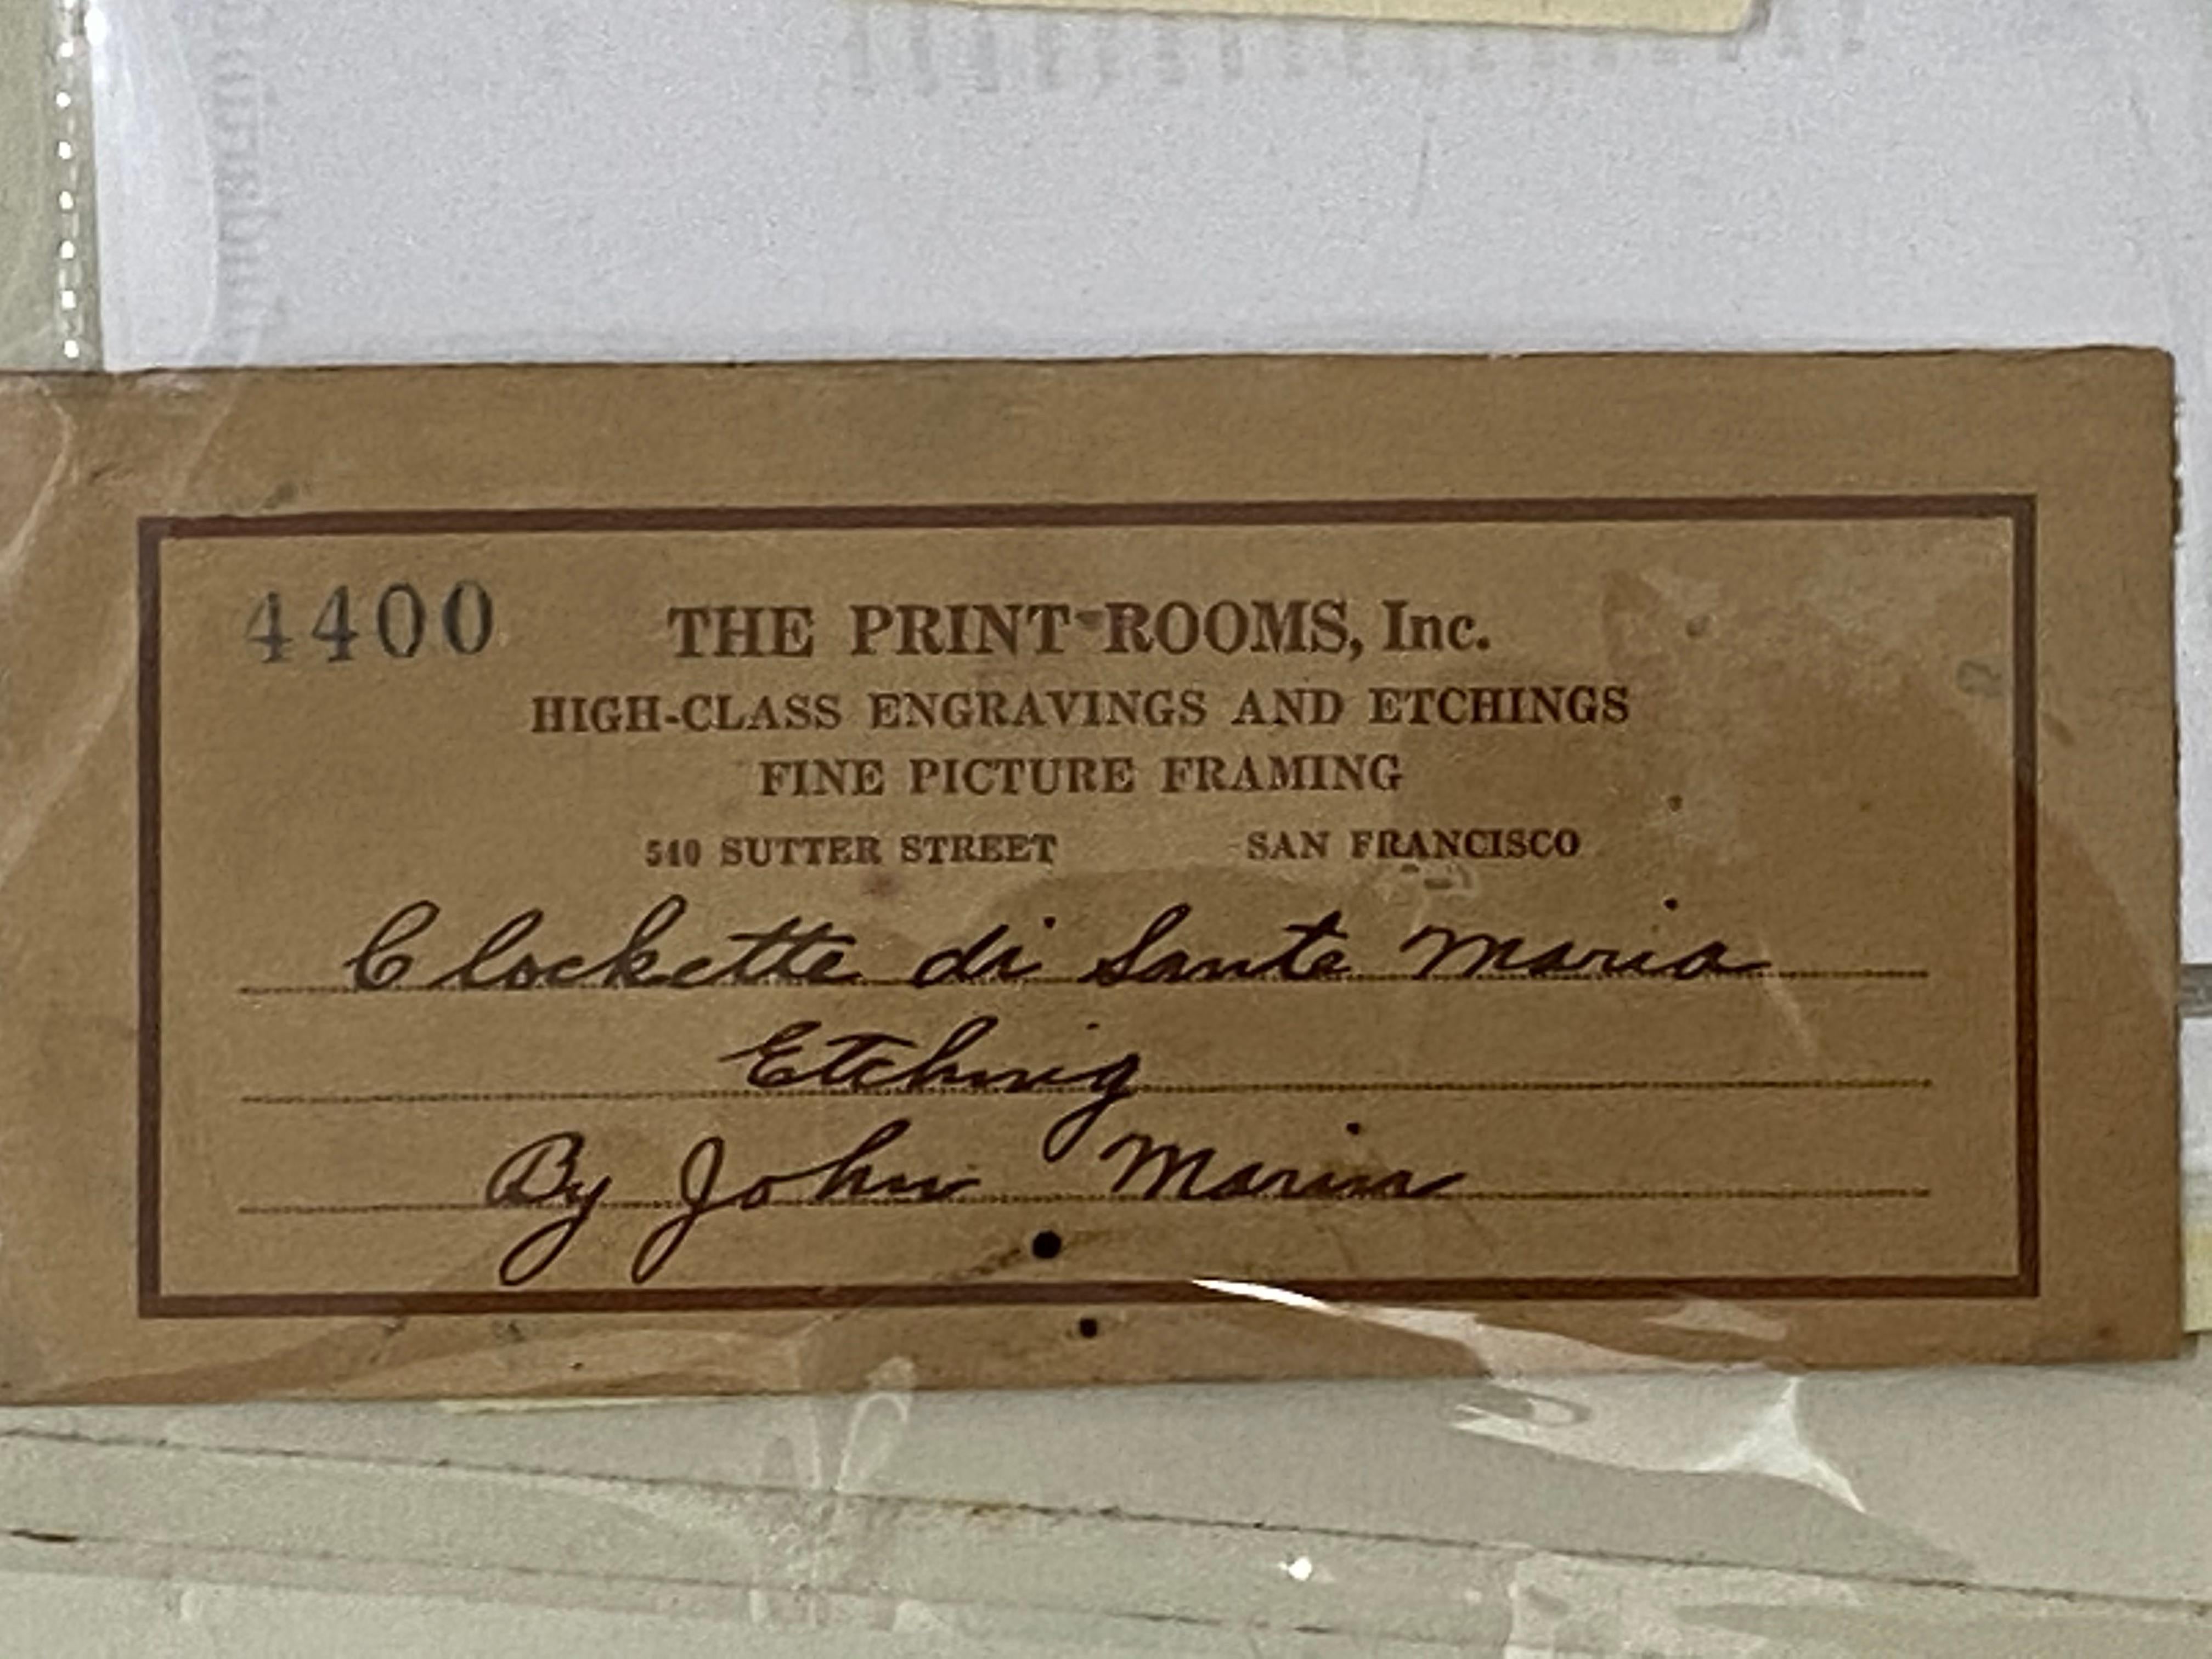 4400 THE PRINT-ROOMS, Inc.
HIGH-CLASS ENGRAVINGS AND ETCHINGS
FINE PICTURE FRAMING
540 SUTTER STREET SAN FRANCISCO
Clockette di Santa Maria
Etching
By John Marin